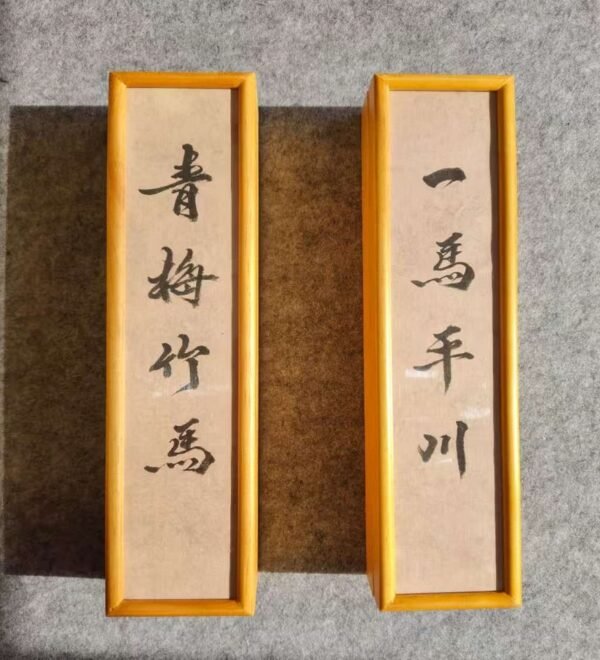 一馬平川
青梅竹馬